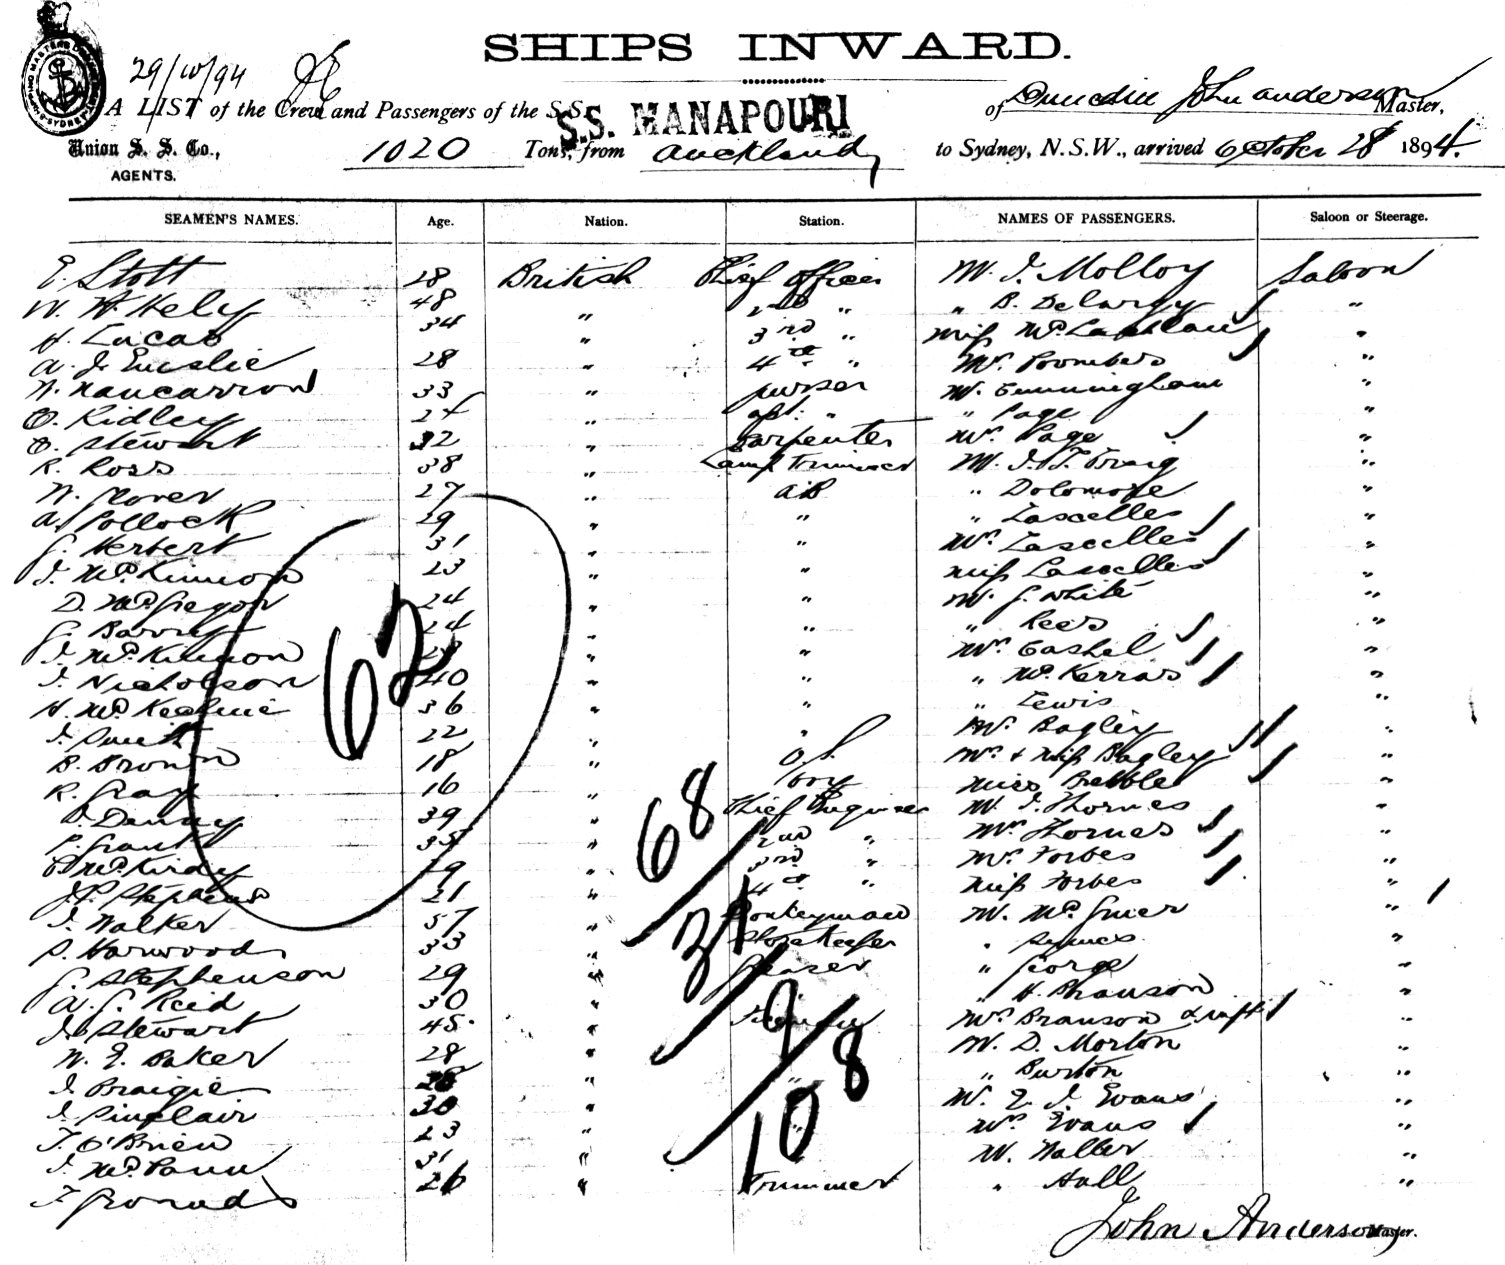 SHIPS INWARD.
29/10/94
A LIST of the Crew and Passengers of the S.S. S.S. MANAPOURI of Dunedin John Anderson Master,
Union S. S. Co., 1020 Tons, from Auckland to Sydney, N.S.W., arrived October 28 1894.
AGENTS.
SEAMEN'S NAMES. Age. Nation. Station. NAMES OF PASSENGERS. Saloon or Steerage.
E. Stott 28 British Chief Officer Mr. J. Molloy Saloon
W. H. Kely 48 " 2nd " " B. Delargy "
H. Lucas 34 " 3rd " Miss "
A. J. Emslie 28 " 4th " Mrs. "
W. Nancarrow 33 " purser Mr. Cunningham "
O. Ridley 24 " " " Page "
O. Stewart 32 " Carpenter Mrs. Page "
R. Ross 38 " Lamp Trimmer Mr. J. T. Craig "
W. Glover 27 " AB " "
A. Pollock 29 " " " Lascelles "
G. Herbert 31 " " Mrs. Lascelles "
J. McKinnon 23 " " Miss Lascelles "
D. McGregor 24 " " Mr. G. White "
G. Barry 24 " " " Rees "
J. McKinnon " " Mrs. Cashel "
J. Nicholson 40 " " " "
H. 36 " " " Lewis "
J. Smith 22 " " Mr. Bagley "
B. Brown 18 " O.S. Mrs. & Miss Bagley "
R. Gray 16 " Boy Miss "
Danny 39 " Chief Engineer Mr. J. Thornes "
P. Grant 35 " 2nd " Mrs. Thornes "
McKirdy 29 " 3rd " Mrs. Forbes "
J. P. Stephens 21 " 4th " Miss Forbes "
J. Walker 57 " Donkeyman Mr. "
S. Harwood 33 " Storekeeper " Symes "
G. Stephenson 29 " Greaser " George "
A. G. Reid 30 " " H. Branson "
J. Stewart 45 " Mrs. Branson & inft "
W. E. Baker 28 " Mr. D. Morton "
J. Craigie " " " Burton "
J. Sinclair 30 " Mr. E. J. Evans "
T. O'Brien 23 " " Mrs. Evans "
J. 31 " Mr. Waller "
F. 26 " Trimmer " Hall "
62
68
31
9
108
John Anderson Master.